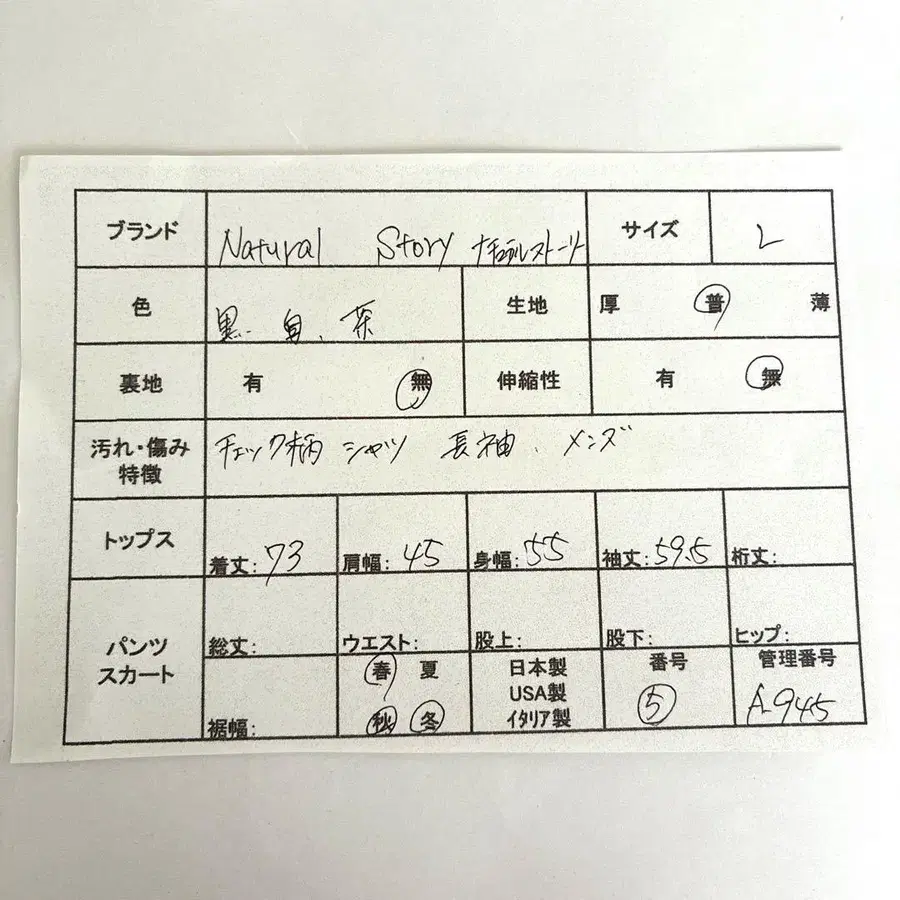 ブランド Natural Story ナチュラルストーリー サイズ L
色 黒、白、茶 生地 厚 普 薄
裏地 有 無 伸縮性 有 無
汚れ・傷み特徴 チェック柄 シャツ 長袖、メンズ
トップス 着丈:73 肩幅:45 身幅:55 袖丈:59.5 裄丈:
パンツ スカート 総丈: ウエスト: 股上: 股下: ヒップ:
裾幅: 春 夏 秋 冬 日本製 USA製 イタリア製 番号 5 管理番号 A-945